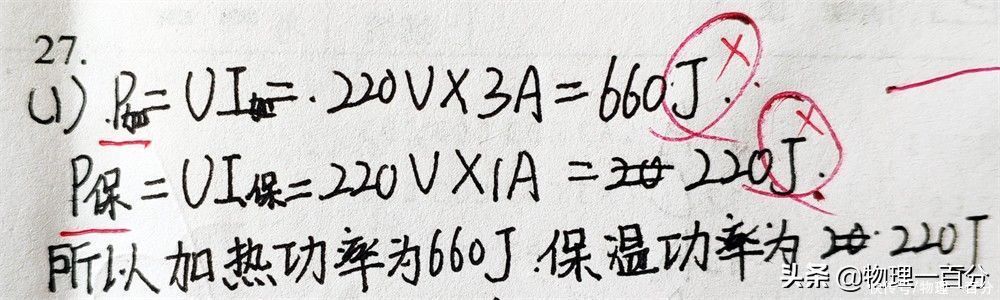 27.
(1) P加=UI加=.220V×3A=660J.
P保=UI保=220V×1A=220J.
所以加热功率为660J.保温功率为220J
头条 @物理一百分